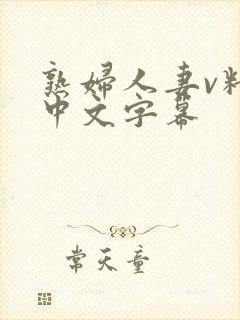 熟婦人妻v精
中文字幕
常天童